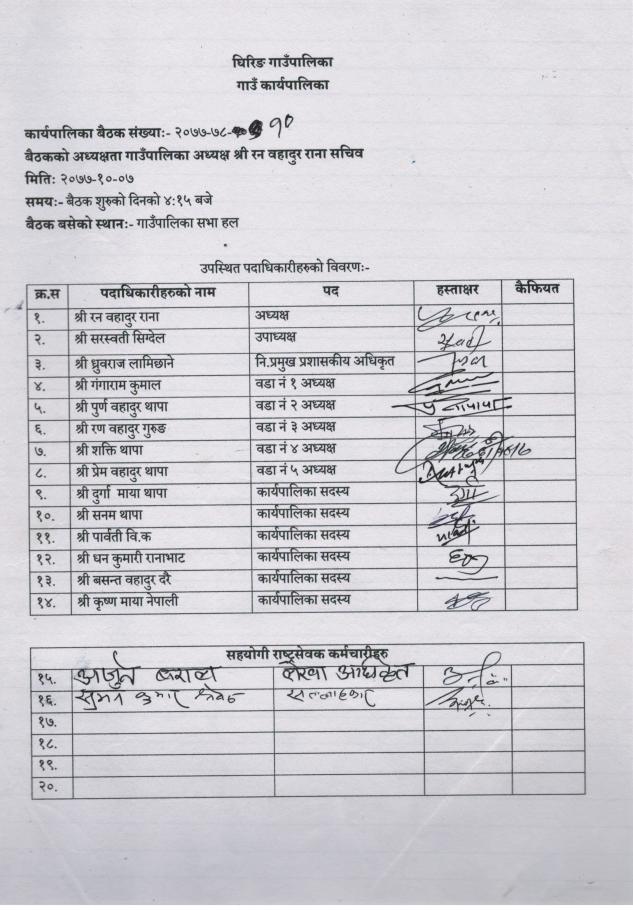 घिरिङ गाउँपालिका
गाउँ कार्यपालिका
कार्यपालिका बैठक संख्याः- २०७७-७८- १०
बैठकको अध्यक्षता गाउँपालिका अध्यक्ष श्री रन वहादुर राना सचिव
मितिः २०७७-१०-०७
समयः- बैठक शुरुको दिनको ४:१५ बजे
बैठक बसेको स्थानः- गाउँपालिका सभा हल
उपस्थित पदाधिकारीहरुको विवरणः-
क्र.स पदाधिकारीहरुको नाम पद हस्ताक्षर कैफियत
१. श्री रन वहादुर राना अध्यक्ष
२. श्री सरस्वती सिग्देल उपाध्यक्ष
३. श्री ध्रुवराज लामिछाने नि.प्रमुख प्रशासकीय अधिकृत
४. श्री गंगाराम कुमाल वडा नं १ अध्यक्ष
५. श्री पुर्ण वहादुर थापा वडा नं २ अध्यक्ष
६. श्री रण वहादुर गुरुङ वडा नं ३ अध्यक्ष
७. श्री शक्ति थापा वडा नं ४ अध्यक्ष
८. श्री प्रेम वहादुर थापा वडा नं ५ अध्यक्ष
९. श्री दुर्गा माया थापा कार्यपालिका सदस्य
१०. श्री सनम थापा कार्यपालिका सदस्य
११. श्री पार्वती वि.क कार्यपालिका सदस्य
१२. श्री धन कुमारी रानाभाट कार्यपालिका सदस्य
१३. श्री बसन्त वहादुर दरै कार्यपालिका सदस्य
१४. श्री कृष्ण माया नेपाली कार्यपालिका सदस्य
सहयोगी राष्ट्रसेवक कर्मचारीहरु
१५. लेखा अधिकृत
१६. कुमार श्रेष्ठ सल्लाहकार
१७.
१८.
१९.
२०.